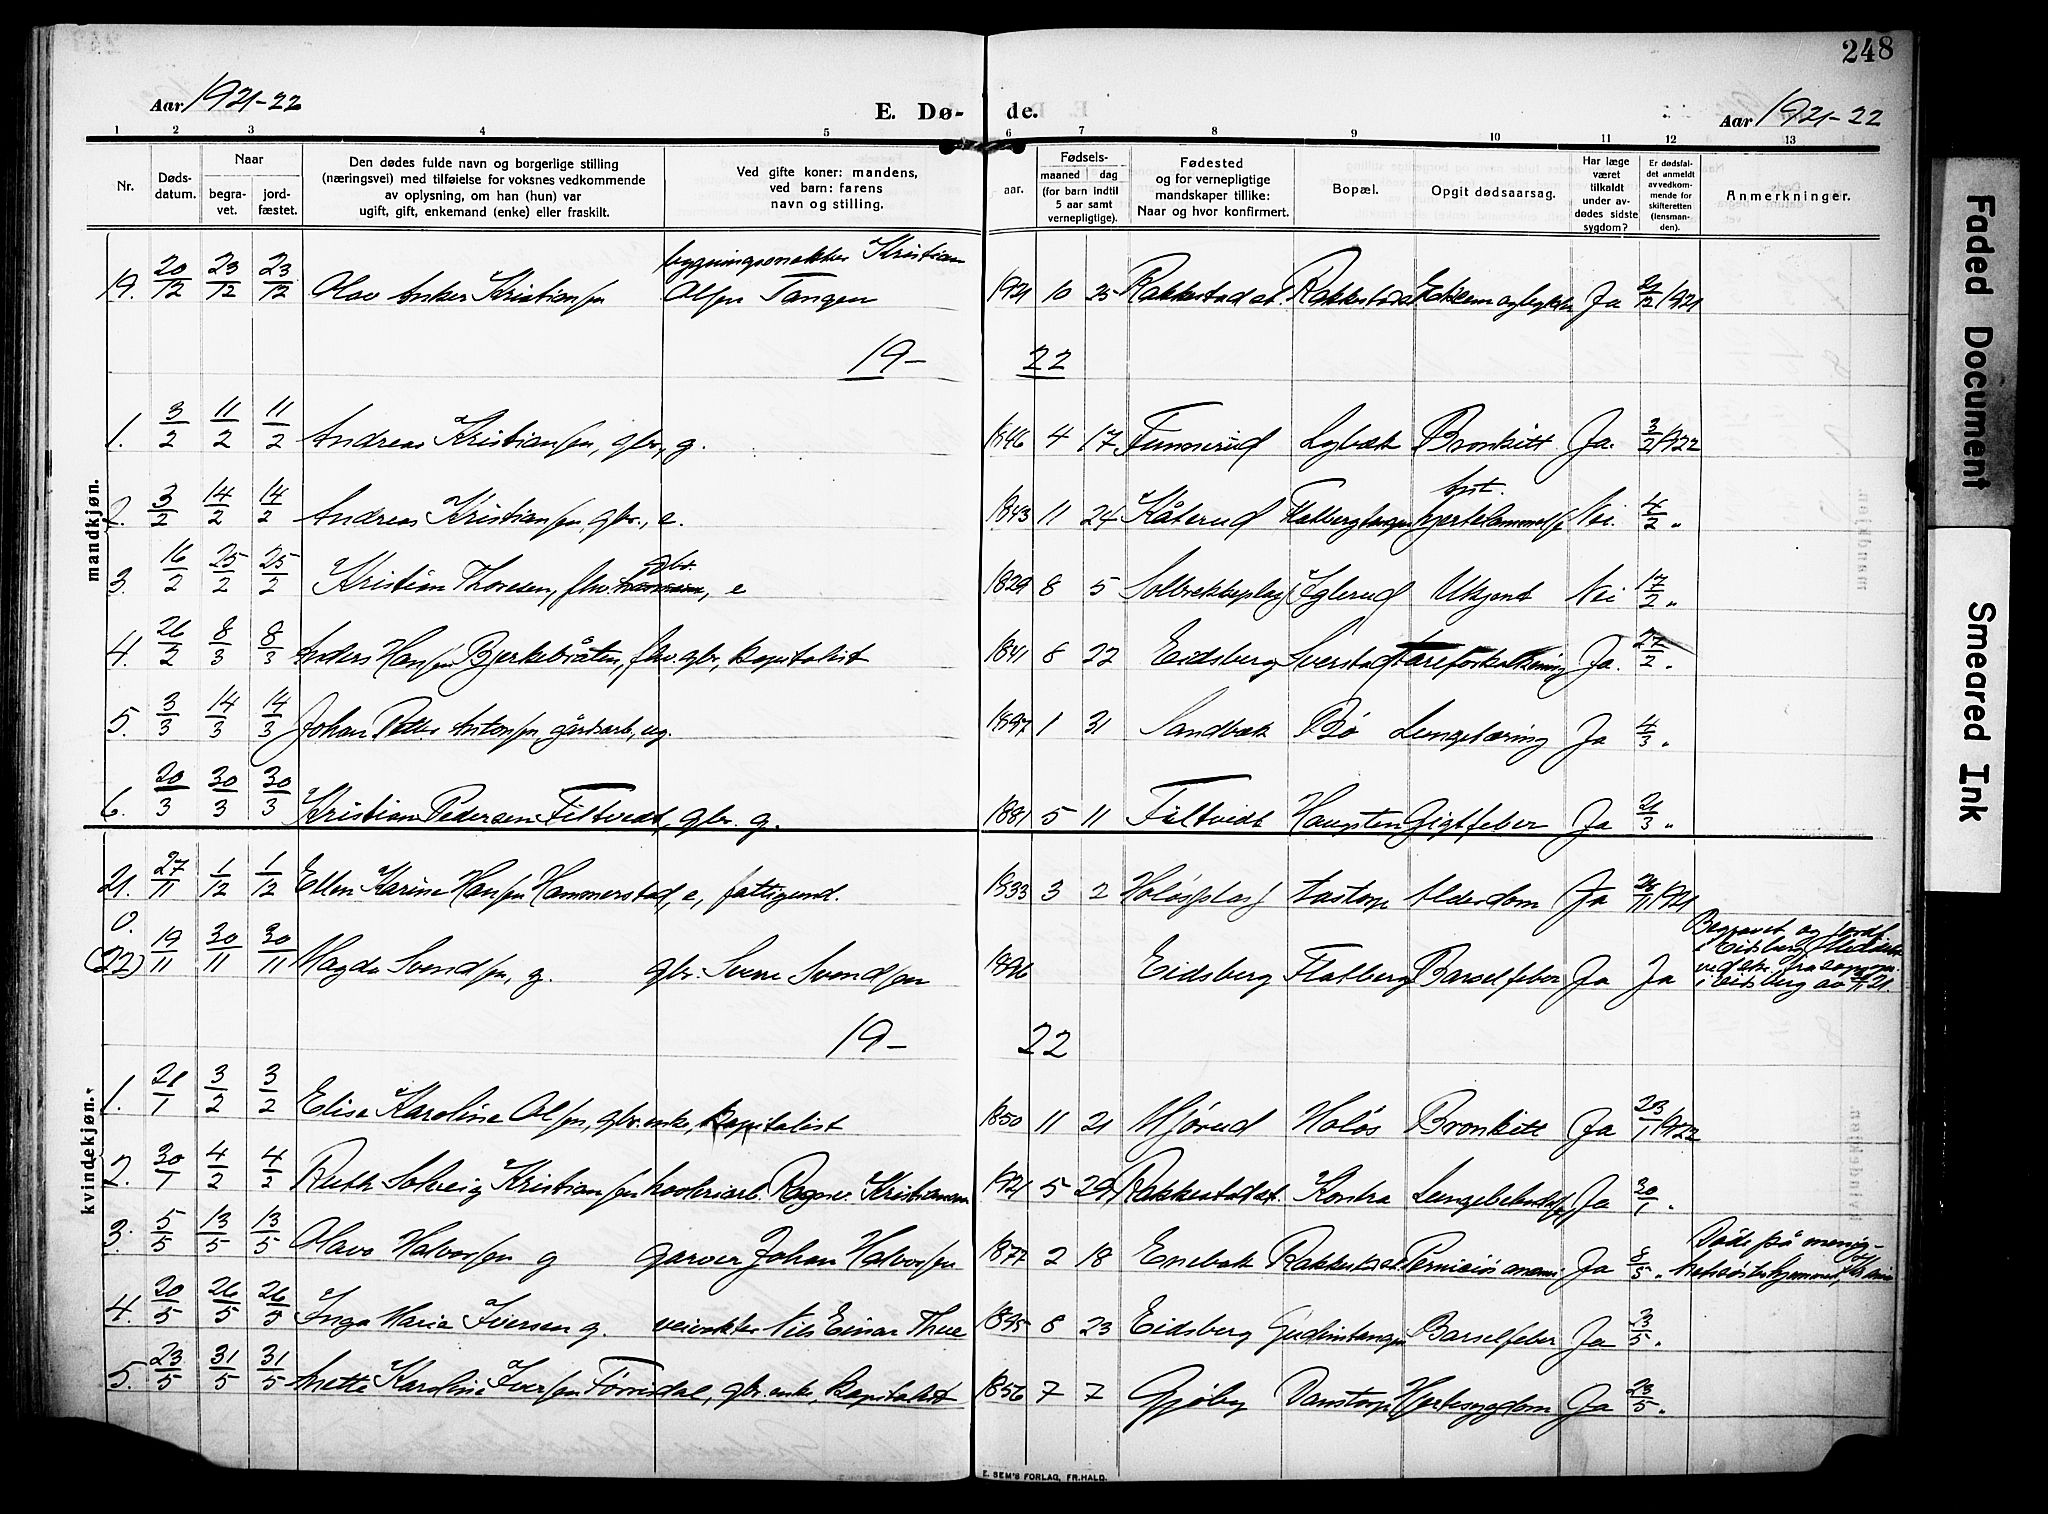 248
Aar 1921-22
E. Dø- de.
Aar 1921-22
1 2 3 4 5 6 7 8 9 10 11 12 13
Nr.
Døds-
datum.
Naar
begra-
vet.
jord-
fæstet.
Den dødes fulde navn og borgerlige stilling
(næringsvei) med tilføielse for voksnes vedkommende
av oplysning, om han (hun) var
ugift, gift, enkemand (enke) eller fraskilt.
Ved gifte koner: mandens,
ved barn: farens
navn og stilling.
aar.
Fødsels-
maaned dag
(for barn indtil
5 aar samt
vernepligtige).
Fødested
og for vernepligtige
mandskaper tillike:
Naar og hvor konfirmert.
Bopæl.
Opgit dødsaarsag.
Har læge
været
tilkaldt
under av-
dødes sidste
sygdom?
Er dødsfal-
det anmeldt
av vedkom-
mende for
skifteretten
(lensman-
den).
Anmerkninger.
mandkjøn.
19. 20/12 23/12 23/12 Olav Anker Kristiansen bygningssnekker Kristian
Olsen Tangen 1921 10 25 Rakkestad st. Rakkestad st. Ja 21/12 1921
19- 22
1. 3/2 11/2 11/2 Andreas Kristiansen, gbr., g. 1846 4 17 Funnerud Lybæk Bronkitt Ja. 3/2 1922
2. 3/2 14/2 14/2 Andreas Kristiansen, gbr., e. 1843 11 24 Kåterud Flatbergtangen hjertelammelse Nei. 4/2 "
3. 16/2 25/2 25/2 Kristian Thoresen, fhv. gbr., e 1829 8 5 Solbrekkeplads Iglerud Ukjent Nei 17/2 "
4. 26/2 8/3 8/3 Anders Hansen Bjerkebråten, fhv. gbr., kapitalist 1841 8 22 Eidsberg Sverstad Åreforkalkning Ja. 27/2 "
5. 3/3 14/3 14/3 Johan Petter Antonsen, gårdsarb., ug. 1897 1 31 Sandbæk Bø Lungetæring Ja 4/3 "
6. 20/3 30/3 30/3 Kristian Pedersen Filtvedt, gbr. g. 1881 5 11 Filtvedt Haugsten Gigtfeber Ja 21/3 "
kvindekjøn.
21. 27/11 1/12 1/12 Ellen Karine Hansen Hammerstad, e., fattigund. 1833 3 2 Holøsplads Aastorp Alderdom Ja 28/11 1921
0.
(22) 19/11 30/11 30/11 Magda Svendsen, g. gbr. Svene Svendsen 1896 Eidsberg Flatberg Barselfeber Ja Ja Begravet og jordf.
i Eidsberg
i Eidsberg
19- 22
1. 21/1 3/2 3/2 Elise Karoline Olsen, gbr. enke, kapitalist 1850 11 21 Mjørud Holøs Bronkitt Ja 23/1 1922
2. 30/1 4/2 4/2 Ruth Solveig Kristiansen høvleriarb. Ragnv. Kristiansen 1921 5 29 Rakkestad st. Kontra Lungebetændelse Ja 30/1 "
3. 5/5 13/5 13/5 Olava Halvorsen g garver Johan Halvorsen 1877 2 18 Enebak Rakkestad st. Perniciøs anemi Ja 8/5 " Døde på menig-
hetssøsterhjemmet,
4. 20/5 26/5 26/5 Inga Marie Iversen g. veivokter Nils Einar Thue 1895 8 23 Eidsberg Gudimtangen Barselfeber Ja 23/5 "
5. 23/5 31/5 31/5 Anette Karoline Iversen Tørrisdal, gbr. enke, kapitalist 1856 7 7 Gjølby Danstorp Hjertesygdom Ja 23/5 "
E. SEM'S FORLAG, FR.HALD.
Faded Document
Smeared Ink